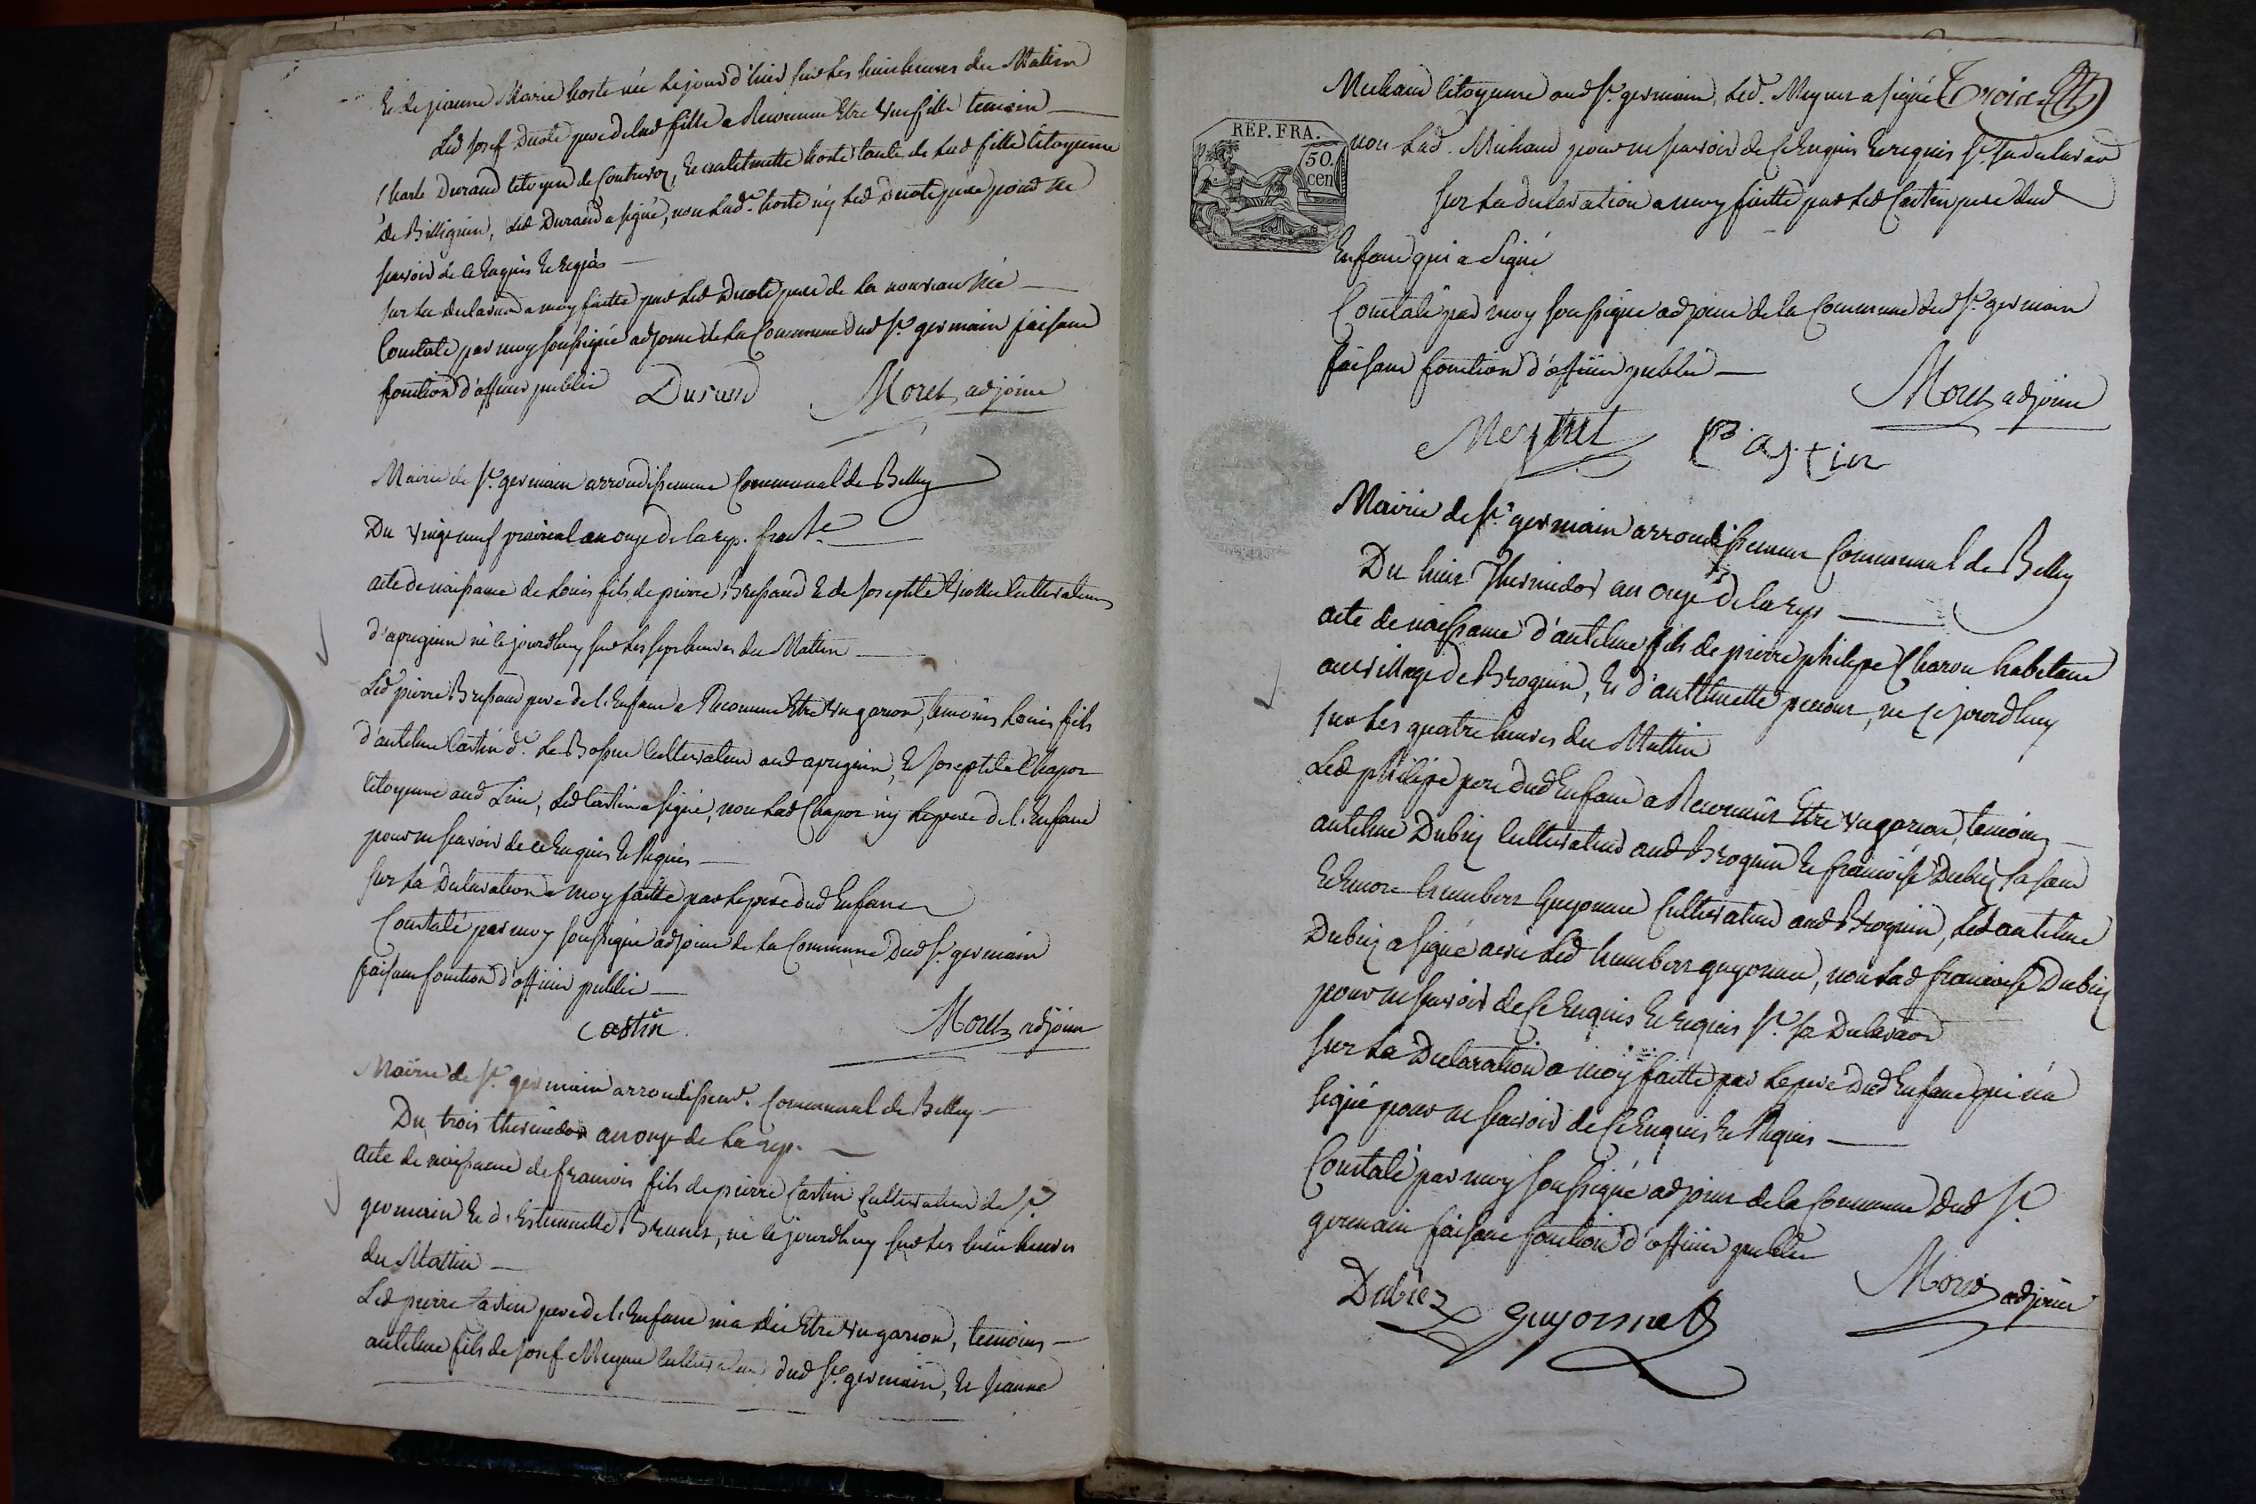 Et de jeanne Marie hoste née le jour d'hier sur les huit heures du Matin
Led JosefDuole pere de lad fille a Reconnu Etre une fille temoin
Charle Durand Citoyen de Contrevoz, Et antelmette hoste tante de lad fille Citoyenne
de Billignin, led Durand a signé, non lad. hoste ny led Duole pere pour ne
scavoir de ce Enquis Et requis
sur la declaration a moy faitte par led Duole pere de la nouveau née
Constaté par moy soussigné adjoint de la Commune dud St germain faisant
fonction d'officier public
Durand Moret adjoint
Mairie de St germain arrondissement Communal de Belley
Du vingt neuf prairial an onze de la rep. franse
acte de naissance de Louis fils de pierre Bressand Et de Josephte cultivateurs
d'apregnin né le jourdhuy sur les sept heures du Mattin
Led pierre Bressand pere de l'Enfant a Reconnu Etre un garcon, temoins Louis fils
d'antelme Castin dt. Le Bossu Cultivateur aud apregnin, Et Josephte Chapot
Citoyenne aud Lieu, led Castin a signé, non lad Chapot ny le pere de l'Enfant
pour ne scavoir de ce Enquis Et Requis
sur la Declaration a moy faitte par le pere dud Enfant
Constaté par moy soussigné adjoint de la Commune dud St germain
faisant fonction d'officier public
Castin Moret adjoint
Mairie de St germain arrondissemt. Communal de Belley
Du trois thermidor an onze de la rep.
acte de naissance de francois fils de pierre Castin Cultivateur de St
germain Et d'Estiennette Brunet, né le jourdhuy sur les huit heures
du Mattin
Led pierre Castin pere de l'Enfant m'a dit Etre un garcon, temoins
antelme fils de Josef Meynet Cultivateur dud St germain, Et jeanne
Michaud Citoyenne aud St germain, led. Meynet a signé
Troise
REP. FRA.
50.
cen
non lad. Michaud pour ne scavoir de ce Enquis Et requis St. sa declaraon
sur la declaration a moy faitte par led Castin pere dud
Enfant qui a signé
Constaté par moy soussigné adjoint de la Commune dud St germain
faisant fonction d'officier public
Moret adjoint
Meynet P. Castin
Mairie de St germain arrondissement Communal de Belley
Du huit Thermidor an onze de la rep
acte de naissance d'antelme fils de pierre philipe Charon habitant
au village de Brognin, Et d'anthelmette, né ce jourdhuy
sur les quatre heures du Mattin
Led philipe pere dud Enfant a Reconnus Etre un garcon, temoins
antelme Dubiez Cultivateur aud Brognin Et francoise Dubiez sa
Et Encore humbert Guyonnet Cultivateur aud Brognin, led antelme
Dubiez a signé avec led humbert guyonnet, non lad francoise Dubiez
pour ne scavoir de ce Enquis Et requis St. sa Declaraon
sur la Declaration a moy faitte par le pere dud Enfant qui n'a
signé pour ne scavoir de ce Enquis Et Requis
Constaté par moy soussigné adjoint de la Commune dud St
germain faisant fonction d'officier public
Moret adjoint
Dubiez guyonnet